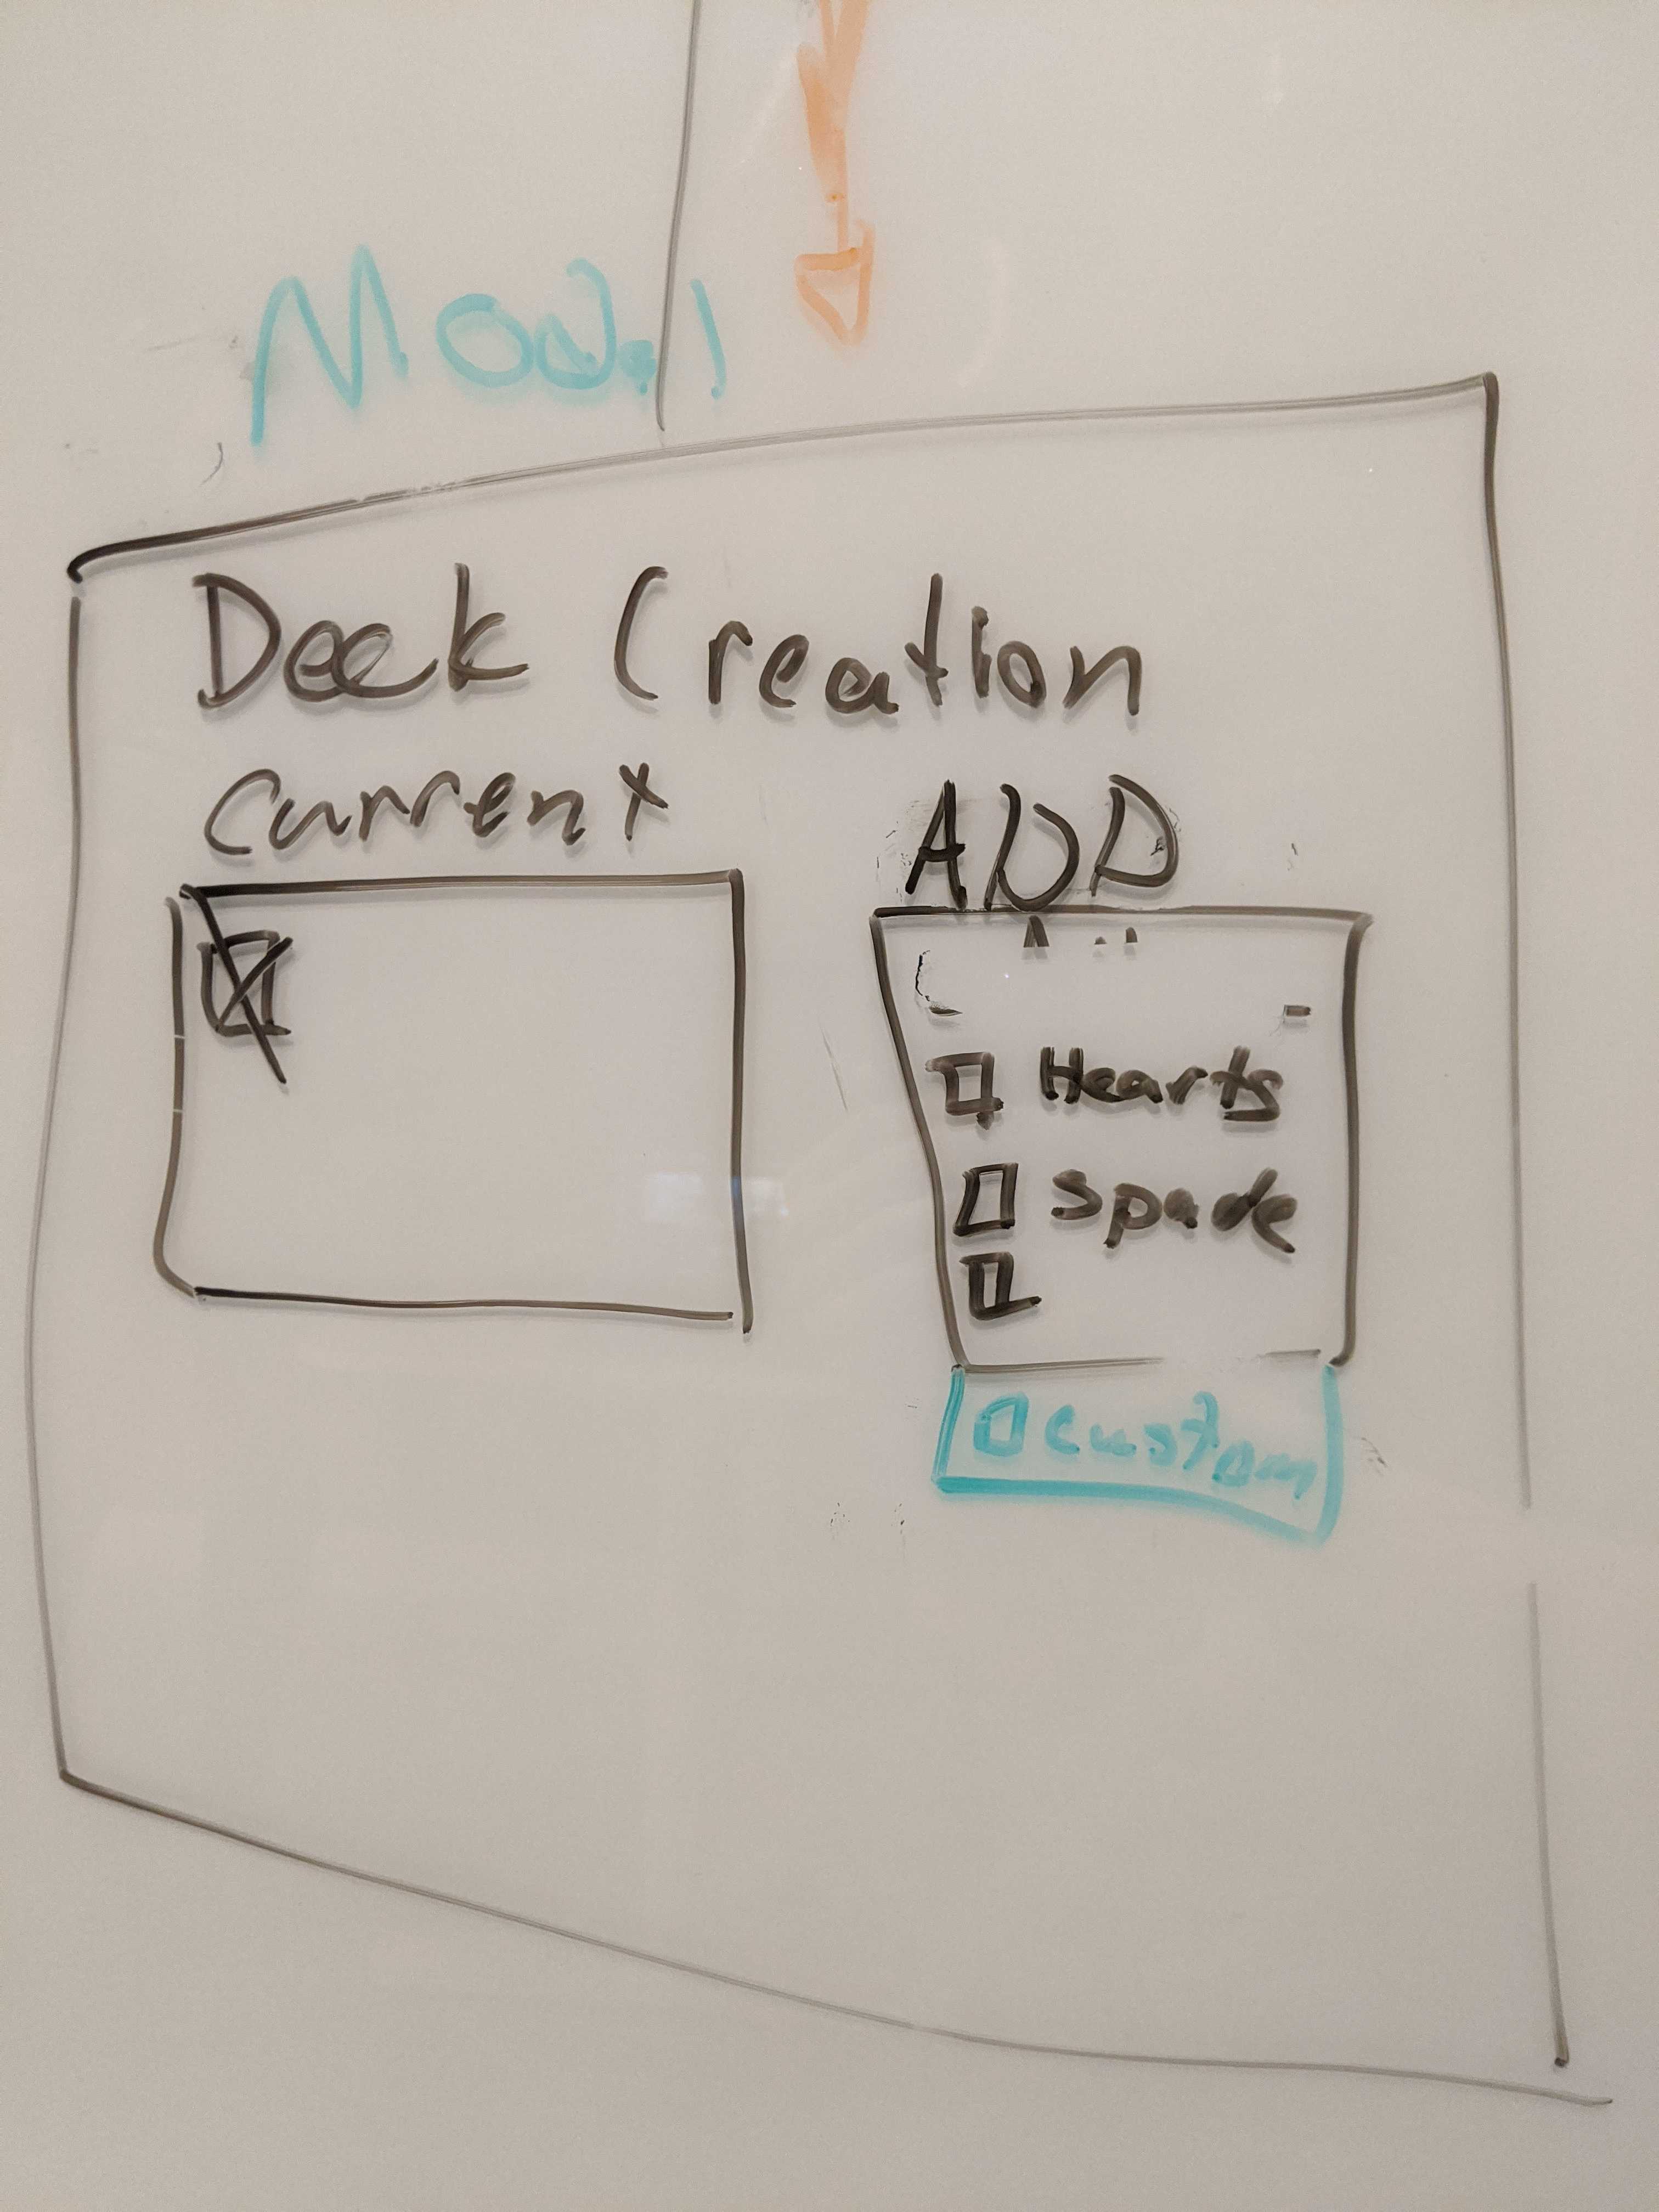 Modal
Deck Creation
Current
ADD
Hearts
Spade
Custom